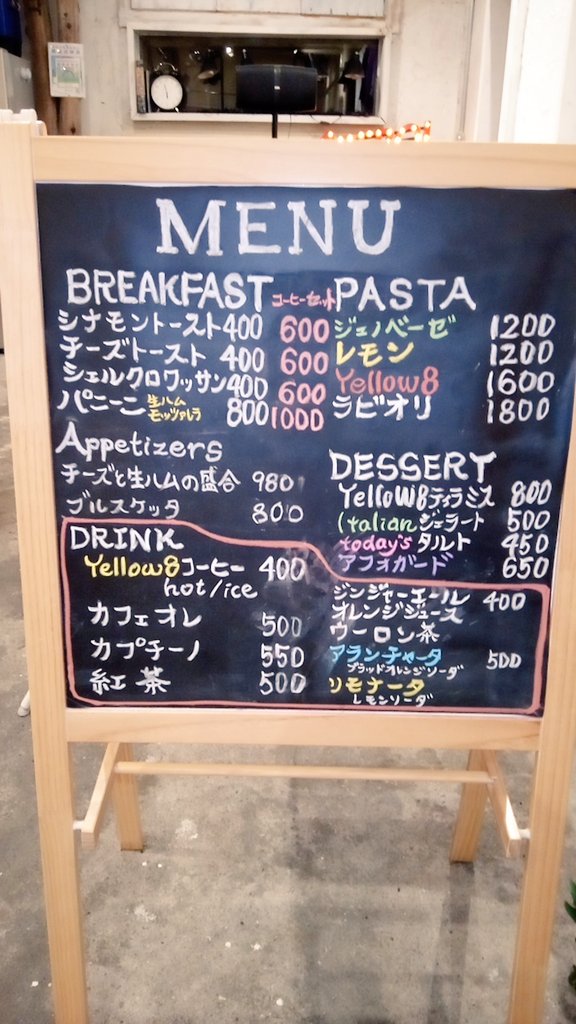 MENU
BREAKFAST コーヒーセット
シナモントースト 400 600
チーズトースト 400 600
シェルクロワッサン 400 600
パニーニ 生ハム モッツァレラ 800 1000
Appetizers
チーズと生ハムの盛合 980
ブルスケッタ 800
PASTA
ジェノベーゼ 1200
レモン 1200
Yellow8 1600
ラビオリ 1800
DESSERT
Yellow8ティラミス 800
Italian ジェラート 500
today's タルト 450
アフォガード 650
DRINK
Yellow8コーヒー 400
hot/ice
カフェオレ 500
カプチーノ 550
紅茶 500
ジンジャーエール 400
オレンジジュース
ウーロン茶
アランチャータ 500
ブラッドオレンジソーダ
リモナータ
レモンソーダ